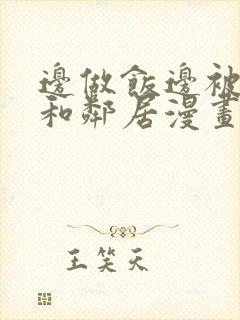 邊做飯邊被
和鄰居漫畫
王笑天